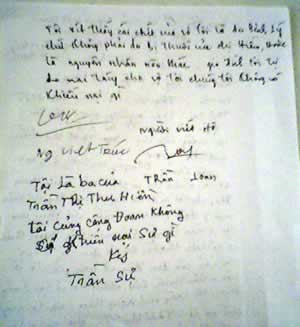 Tôi xét thấy cái chết của vợ tôi là do bệnh lý
chứ không phải do bị thuốc của chị Hiền, hoặc
là nguyên nhân nào khác
do mai táng cho vợ tôi chúng tôi không có
khiếu nại gì
Người viết hộ
Ng Viết Túc
Tôi là ba của Trần Loan
Trần Thị Thu Hiền
Tôi Củng Công Đoan Không
khiêu nại Sự gì
Ký
Trần Sự